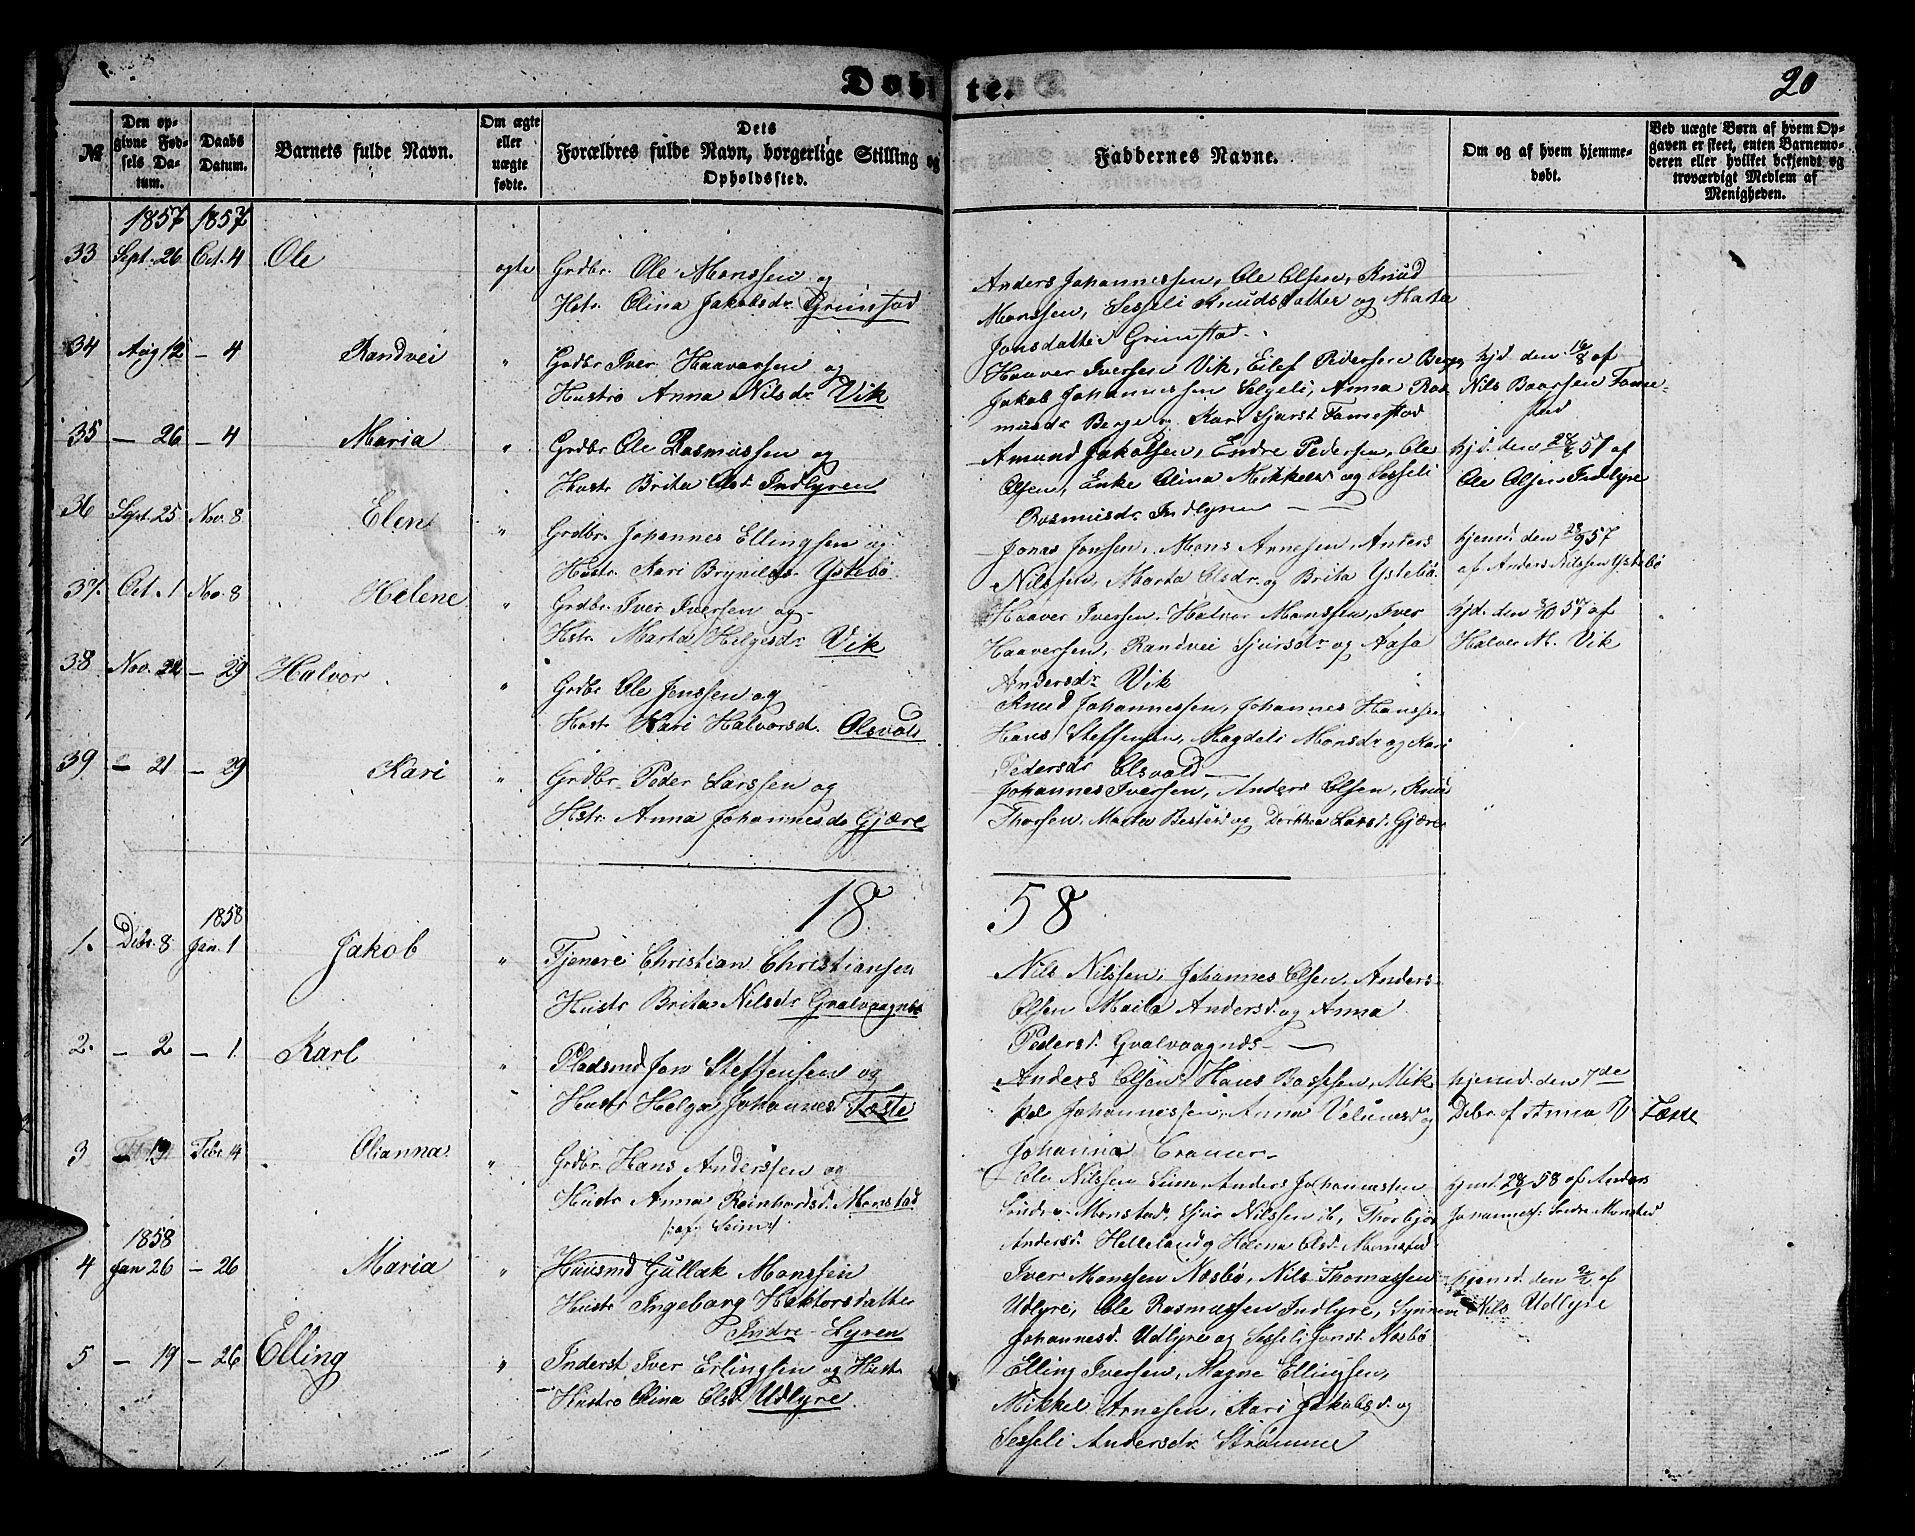 Døbte.
20
№
Den opgivne Fødsels Datum.
Daabs Datum.
Barnets fulde Navn.
Om ægte eller uægte fødte.
Dets Forældres fulde Navn, borgerlige Stilling og Opholdssted.
Faddernes Navne.
Om og af hvem hjemmedøbt.
Ved uægte Børn af hvem Opgaven er skeet, enten Barnemoderen eller hvilket bekjendt og troværdigt Medlem af Menigheden.
1857 1857
33 Sept. 26 Oct. 4 Ole ægte Grdbr. Ole Monssen og
Hstr. Olina Jakobsdr. Grimstad
Anders Johannessen, Ole Olsen, Knud
Monssen, Sesseli Knudsdatter og Marta
Jonsdatter Grimstad.
34 Aug 12 – 4 Randvei " Grdbr Iver Haaversen og
Hustro Anna Nilsdr. Vik
Haaver Iversen Vik, Eilef Pedersen Berge,
Jakob Johannessen Selgeli, Anna Ras
musdr Berge og Kari Sjursd. Tamestad
hjd. den 16/8 af
Nils Baarsen Tame-
stad
35 – 26 – 4 Maria " Grdbr Ole Rasmussen og
Hustr. Brita Olsd. Indlyren
Amund Jakobsen, Endre Pedersen, Ole
Olsen, Enke Olina Mikkelsd og Sesseli
Rasmusdr. Indlyren —
hjd. den 28/8 57 af
Ole Olsen Indlyre
36 Sept. 25 Nov. 8 Elen " Grdbr. Johannes Ellingsen og
Hustr. Kari Brynilds. Ystebö
Jonas Jonsen, Mons Arnesen, Anders
Nilssen, Marta Olsdr. og Brita Ystebö.
hjemd. den 28/9 57
af Anders Nilssen Ystebö
37. Oct. 1 Nov. 8 Helene " Grdbr. Iver Iversen og
Hstr. Marta Helgesdr. Vik
Haaver Iversen, Halvor Monssen, Iver
Haaversen, Randvei Sjursdr. og Aasa
Andersdr. Vik
hjd. den 3/10 57 af
Halvor M. Vik
38 Nov. 22 – 29 Halvor " Grdbr Ole Jonssen og
Hustr Kari Halvorsd. Olsvold
Knud Johannessen, Johannes Hanssen
Hans Steffensen, Magdeli Monsdr og Kari
Pedersdr Olsvold —
39 – 21 – 29 Kari " Grdbr. Peder Larssen og
Hstr. Anna Johannesd. Gjære
Johannes Iversen, Anders Olsen, Knud
Thorsen, Marta Bestesd og Dorthea Larsd. Gjære
1858
1858
1. Debr. 8 Jan. 1 Jakob " Tjener Christian Christiansen
Hustr Brita Nilsdr Gvalvaagnes
Nils Nilssen, Johannes Olsen, Anders
Olsen Andersd. og Anna
Pedersd. Gvalvaagnæs —
2. – 2 – 1. Karl " Pladsmd Jon Steffensen og
Hustr Helga Johannes. Tæste
Anders Olsen, Hans Bossen, Mik
kel Johannessen, Anna og
Johanna Craner —
hjemd. den 7de
Debr af Anna Tæste
3 – 19 Febr. 4 Olianna " Grdbr. Hans Anderssen og
Hustr Anna Reinhardsd. Monstad
/: af: Seim :/
Ole Nilssen Seim, Anders Johannessen
Søndre Monstad, Sjur Nilssen ib, Thorbjør
Andersd. Helleland og Helena Olsd. Monstad
hjemd. 28/1 58 af Anders
Johanness. Søndre Monstad
1858
4 Jan 26 – 26 Maria " Huusmd Gullak Monssen
Hustr Ingeborg Hektorsdatter
Indre Lyren
Iver Monssen Næsbö, Nils Thomassen
Udlyre, Ole Rasmussen Indlyre, Synneve
Johannesd. Udlyre og Sesseli Jonsd. Næsbö
hjemd. den 2/2 af
Nils Udlyre
5 – 19 – 26 Elling " Inderst Iver Erlingsen og Hustr.
Hustro Olina Olsd. Udlyre.
Elling Iversen, Magne Ellingsen,
Mikkel Arnesen, Kari Jakobsd. og
Sesseli Andersdr. Strømme